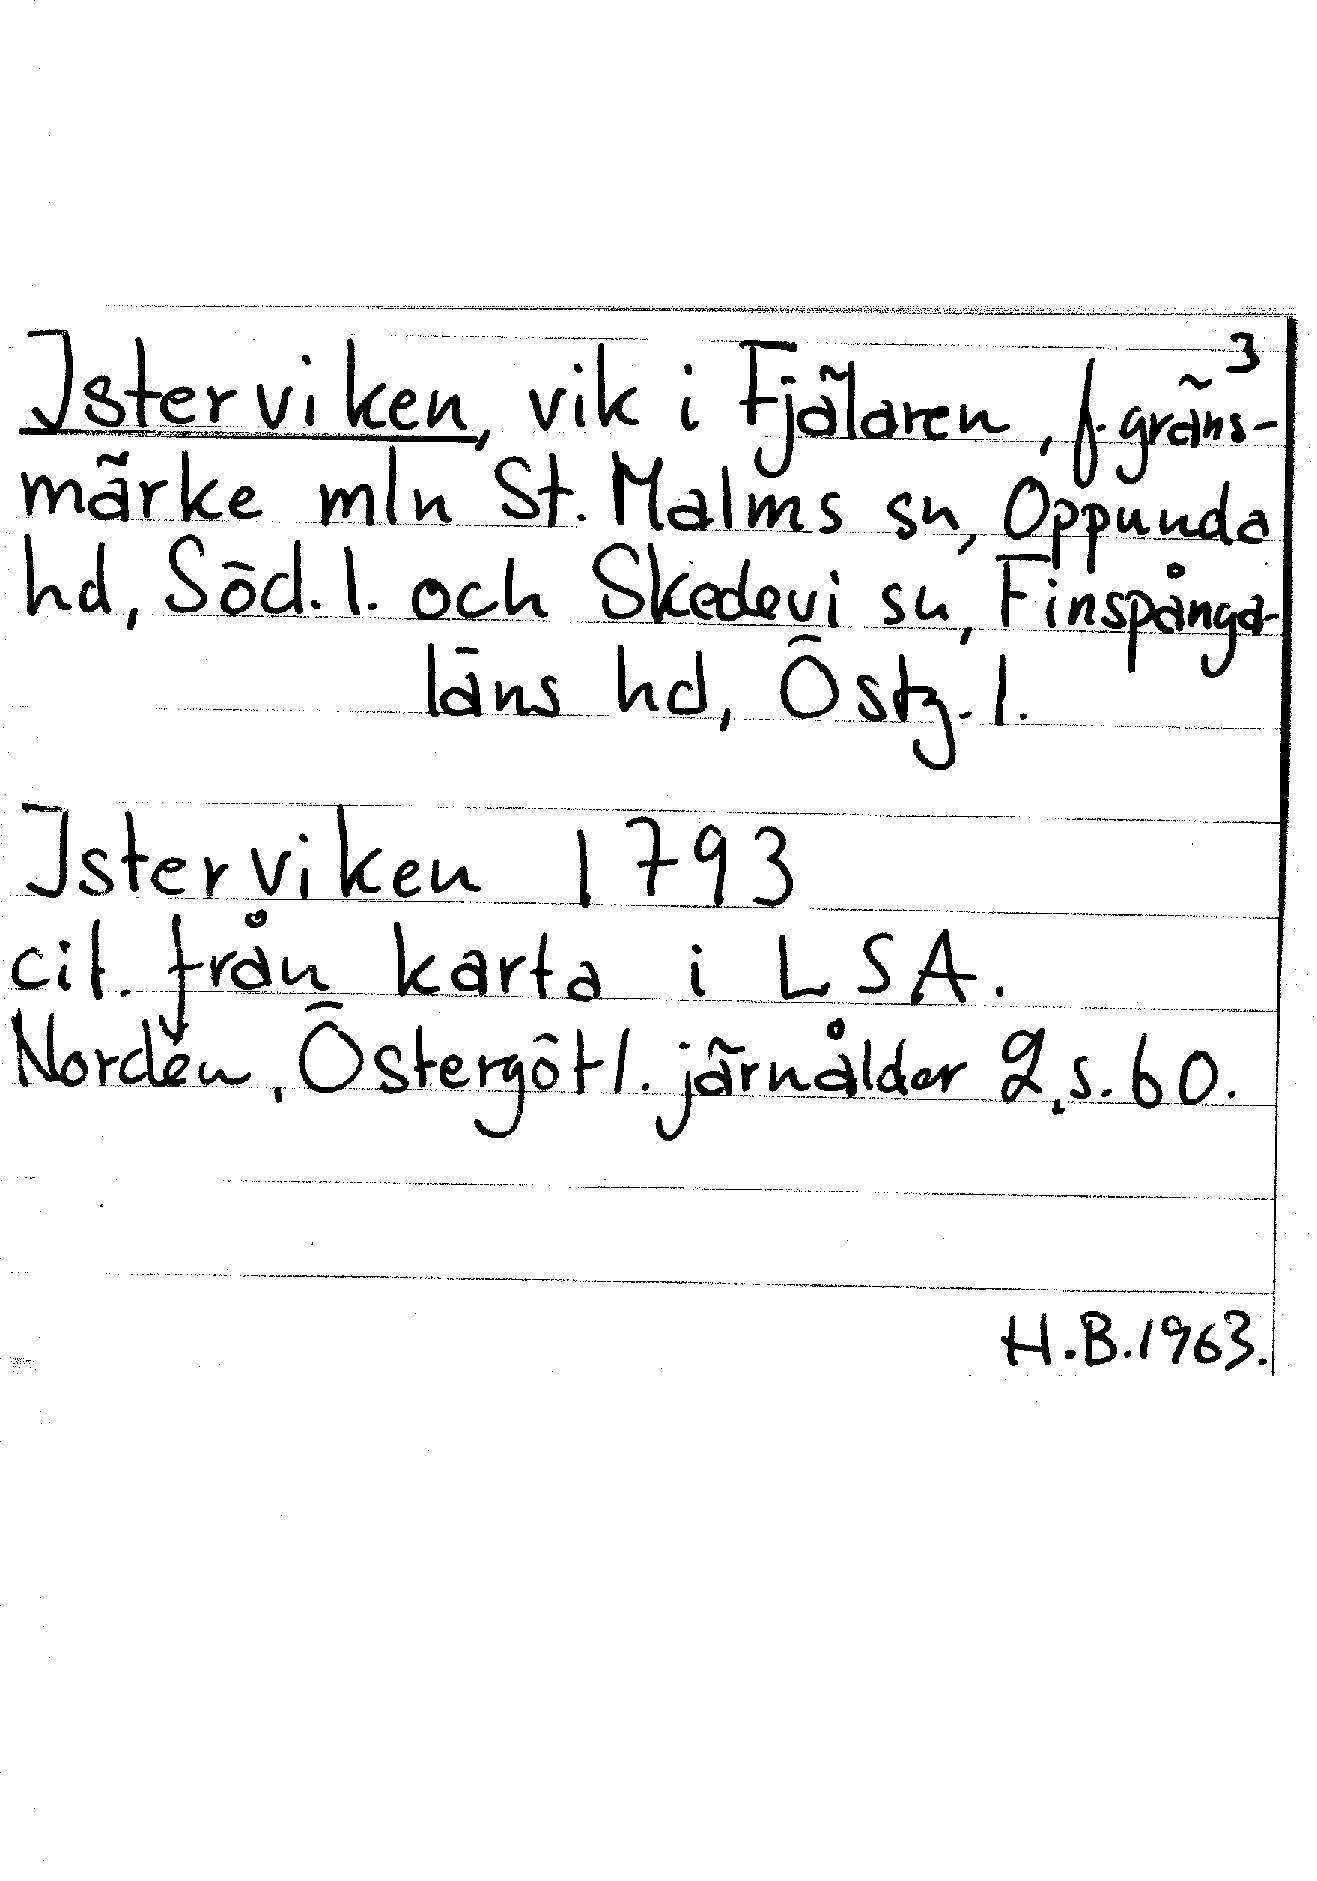 3
Isterviken, vik i Fjälaren, f. gräns-
märke mln St. Malms sn, Oppunda
hd, Söd. l. och Skedevi sn, Finspånga-
läns hd, Östg. l.
Isterviken 1793
cit. från karta i LSA.
Nordén, Östergötl. järnålder 2, s. 60.
H.B. 1963.